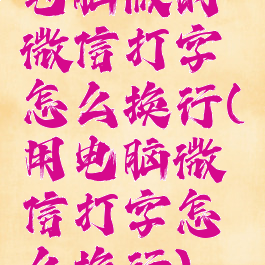 电脑版的
微信打字
怎么换行(
用电脑微
信打字怎
么换行)